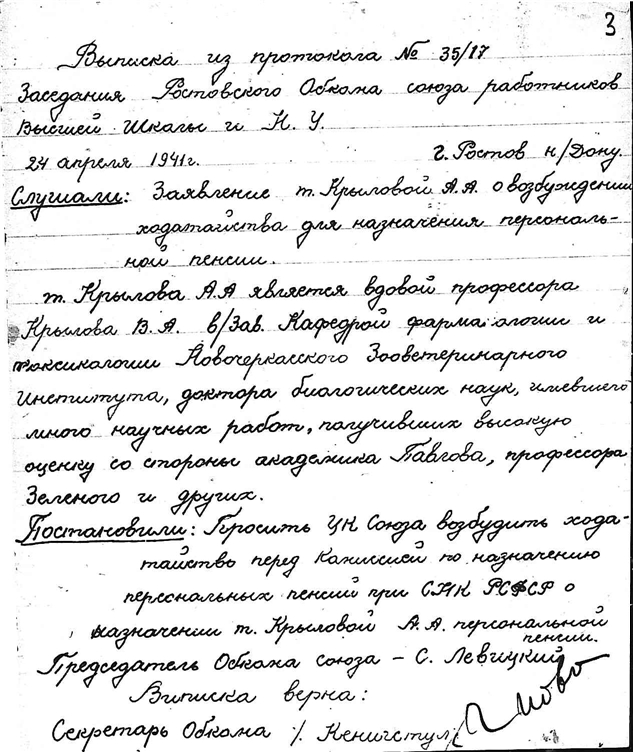 3
Выписка из протокола № 35/17
Заседания Ростовского Обкома союза работников
Высшей Школы и Н. У.
24 апреля 1941г. г. Ростов н/Дону.
Слушали: Заявление т. Крыловой А.А. о возбуждении
ходатайства для назначения персональ-
ной пенсии.
т. Крылова А.А является вдовой профессора
Крылова В.А. в/Зав. Кафедрой фармакологии и
токсикологии Новочеркасского Зооветеринарного
Института, доктора биологических наук, имевшего
много научных работ, получивших высокую
оценку со стороны академика Павлова, профессора
Зеленого и других.
Постановили: Просить ЦК Союза возбудить хода-
тайство перед Комиссией по назначению
персональных пенсий при СНК РСФСР о
назначении т. Крыловой А.А. персональной
пенсии.
Председатель Обкома союза – С. Левицкий
Виписка верна:
Секретарь Обкома